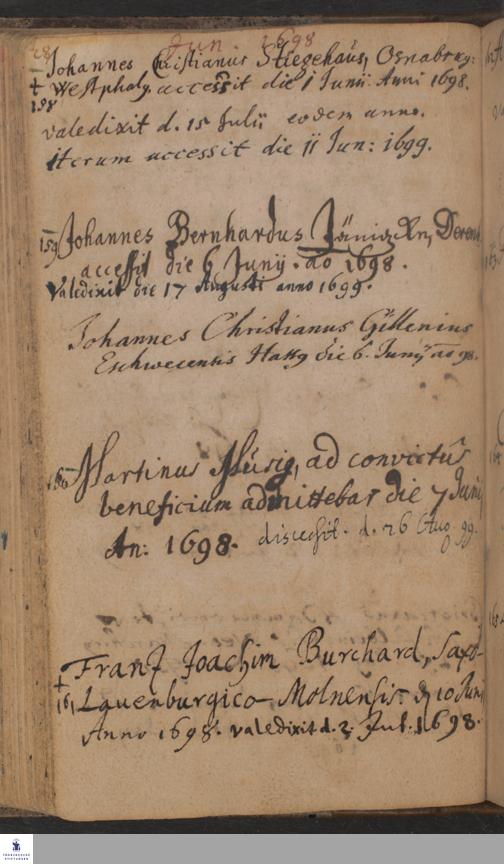 Jun. 1698
Johannes Christianus Stiegehaus, Osnabrug:
Westphaly. accessit die 1 Junii Anni 1698.
158
valedixit d. 15 Julii eodem anno.
iterum accessit die 11 Jun: 1699.
159 Johannes Bernhardus
accessit die 6 Junij. ao 1698.
Valedixit die 17 Augusti anno 1699.
Johannes Christianus Gillenius
Eschwecensis Hass9 die 6. Junij ao 98.
Martinus Müsig, ad convictûs
beneficium admittebar die 7 Junij
An: 1698. discessit. d. 26 Aug. 99.
Franz Joachim Burchard, Saxo-
161 Lauenburgico-Molnensis. 10 Junij
Anno 1698. valedixit d. 2. Jul. 1698.